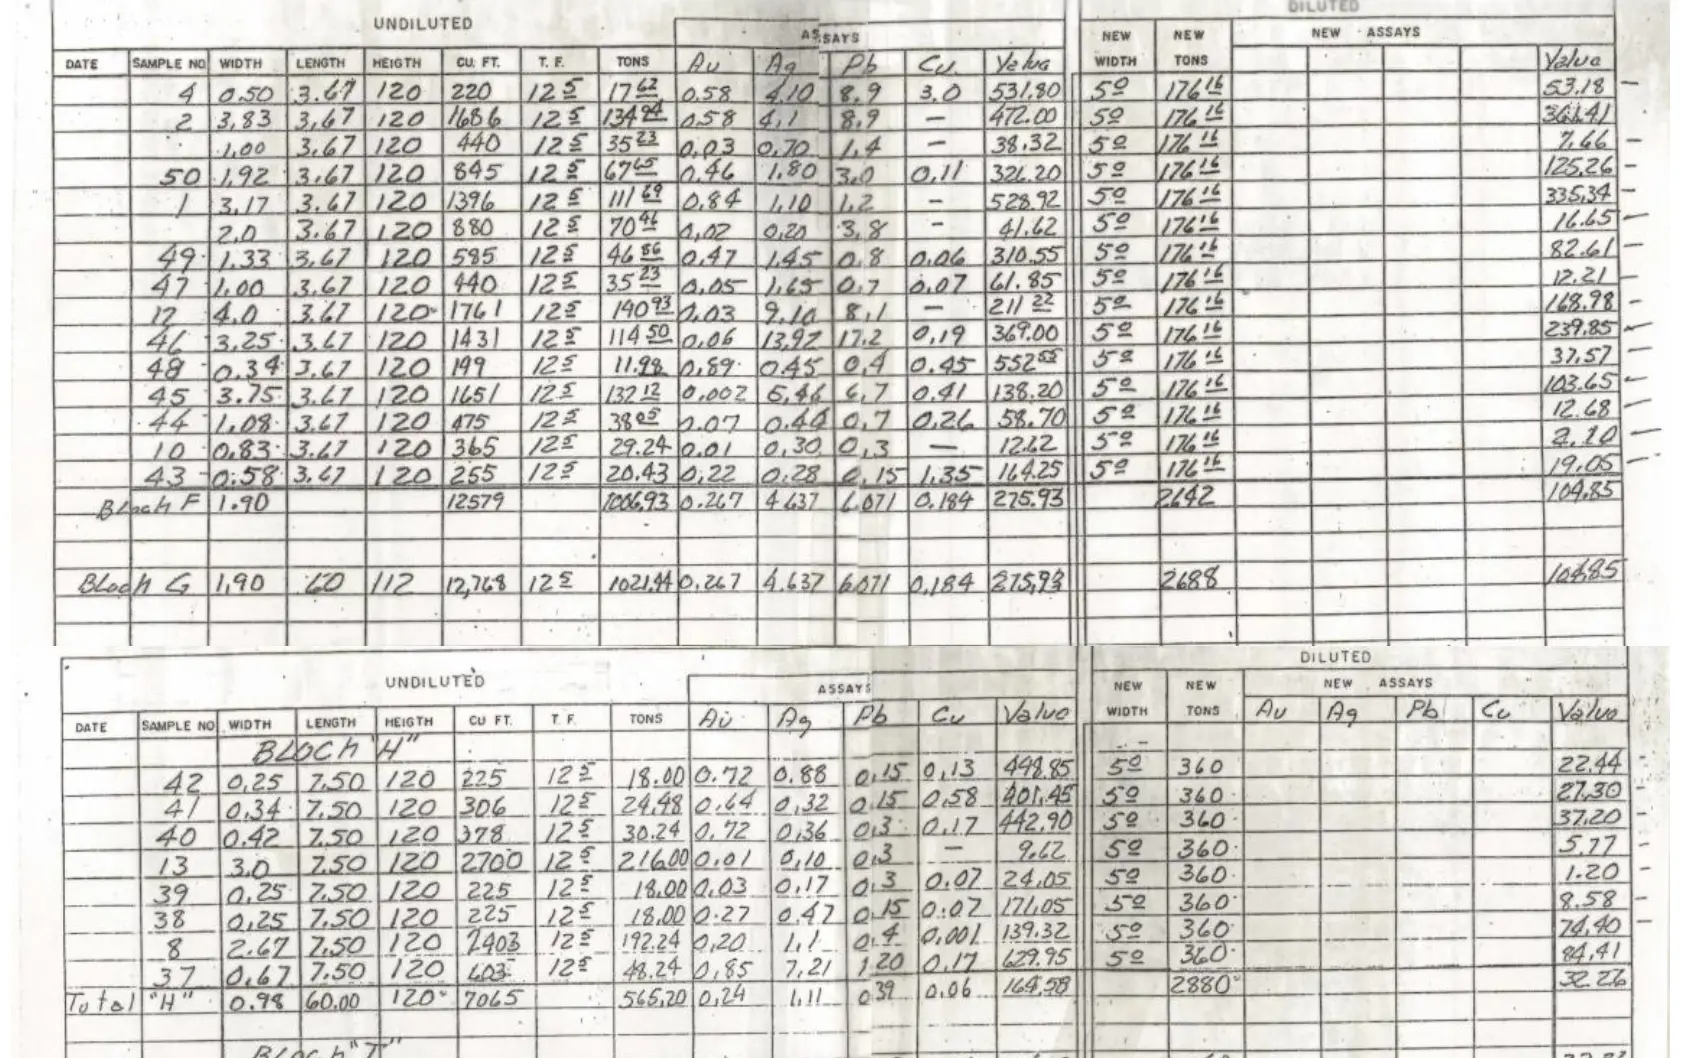 UNDILUTED DILUTED
ASSAYS NEW NEW NEW ASSAYS
DATE SAMPLE NO WIDTH LENGTH HEIGTH CU. FT. T. F. TONS Au Ag Pb Cu Value WIDTH TONS Value
4 0.50 3.67 120 220 12 5 17 62 0.58 4.10 8.9 3.0 531.80 5 0 176 16 53.18 -
2 3.83 3.67 120 1686 12 5 134 94 0.58 4.1 8.9 - 472.00 5 0 176 16 361.41 -
1.00 3.67 120 440 12 5 35 23 0.03 0.70 1.4 - 38.32 5 0 176 16 7.66 -
50 1.92 3.67 120 845 12 5 67 65 0.46 1.80 3.0 0.11 326.20 5 0 176 16 125.26 -
1 3.17 3.67 120 1396 12 5 111 69 0.84 1.10 1.2 - 528.92 5 0 176 16 335.34 -
2.0 3.67 120 880 12 5 70 46 0.02 0.20 3.8 - 41.62 5 0 176 16 16.65 -
49 1.33 3.67 120 585 12 5 46 86 0.47 1.45 0.8 0.06 310.55 5 0 176 16 82.61 -
47 1.00 3.67 120 440 12 5 35 23 0.05 1.65 0.7 0.07 61.85 5 0 176 16 12.21 -
12 4.0 3.67 120 1761 12 5 140 93 0.03 9.10 8.1 - 211 22 5 0 176 16 168.98 -
46 3.25 3.67 120 1431 12 5 114 50 0.06 13.92 17.2 0.19 369.00 5 0 176 16 239.85 -
48 0.34 3.67 120 149 12 5 11.98 0.89 0.45 0.4 0.45 552 55 5 0 176 16 37.57 -
45 3.75 3.67 120 1651 12 5 132 12 0.002 6.46 6.7 0.41 138.20 5 0 176 16 103.65 -
44 1.08 3.67 120 475 12 5 38 05 0.07 0.44 0.7 0.26 58.70 5 0 176 16 12.68 -
10 0.83 3.67 120 365 12 5 29.24 0.01 0.30 0.3 - 12.62 5 0 176 16 2.10 -
43 0.58 3.67 120 255 12 5 20.43 0.22 0.28 0.15 1.35 164.25 5 0 176 16 19.05 -
Block F 1.90 12579 1006.93 0.267 4.637 6.071 0.184 275.93 2642 104.85
Block G 1.90 60 112 12,768 12 5 1021.44 0.267 4.637 6.071 0.184 275.93 2688 104.85
UNDILUTED DILUTED
ASSAYS NEW NEW NEW ASSAYS
DATE SAMPLE NO WIDTH LENGTH HEIGTH CU FT. T. F. TONS Au Ag Pb Cu Value WIDTH TONS Au Ag Pb Cu Value
BLOCK "H"
42 0.25 7.50 120 225 12 5 18.00 0.72 0.88 0.15 0.13 448.85 5 0 360 22.44 -
41 0.34 7.50 120 306 12 5 24.48 0.64 0.32 0.15 0.58 401.45 5 0 360 27.30 -
40 0.42 7.50 120 378 12 5 30.24 0.72 0.36 0.3 0.17 442.90 5 0 360 37.20 -
13 3.0 7.50 120 2700 12 5 216.00 0.01 0.10 0.3 - 9.62 5 0 360 5.77 -
39 0.25 7.50 120 225 12 5 18.00 0.03 0.17 0.3 0.07 24.05 5 0 360 1.20 -
38 0.25 7.50 120 225 12 5 18.00 0.27 0.47 0.15 0.07 171.05 5 0 360 8.58 -
8 2.67 7.50 120 2403 12 5 192.24 0.20 1.1 0.4 0.001 139.32 5 0 360 74.40 -
37 0.67 7.50 120 603 12 5 48.24 0.85 7.21 1.20 0.17 629.95 5 0 360 84.41
Total "H" 0.98 60.00 120 7065 565.20 0.24 1.11 0 39 0.06 164.58 2880 32.26
BLOCK "I"